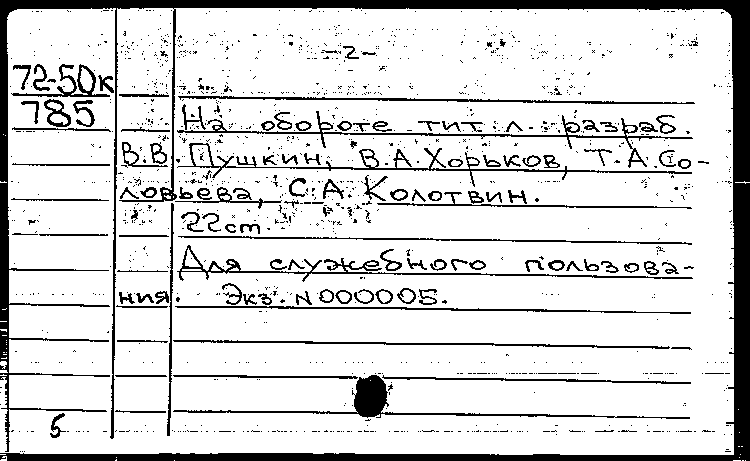 -2-
72-50к
785
На обороте тит. л.: разраб.
В.В. Пушкин, В.А. Хорьков, Т.А. Со-
ловьева, С.А. Колотвин.
22 cm.
Для служебного пользова-
ния. Экз. N 000005.
5